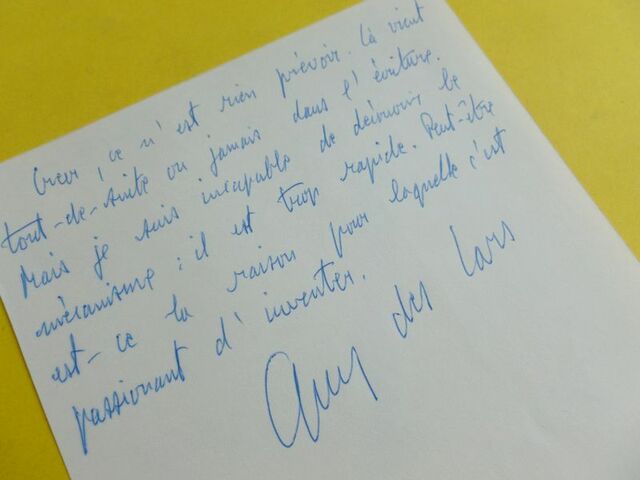 Créer, ce n'est rien prévoir. Ca vient
tout-de-suite ou jamais dans l'écriture.
Mais je suis incapable de démonter le
mécanisme : il est trop rapide. Peut-être
est-ce la raison pour laquelle c'est
passionant d'inventer.
Guy des Cars